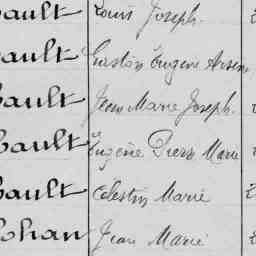 ault Louis Joseph.
ault Gaston Eugène Arsen
ault Jean Marie Joseph.
ault Eugène Pierre Marie
ault Célestin Marie
ohan Jean Marie